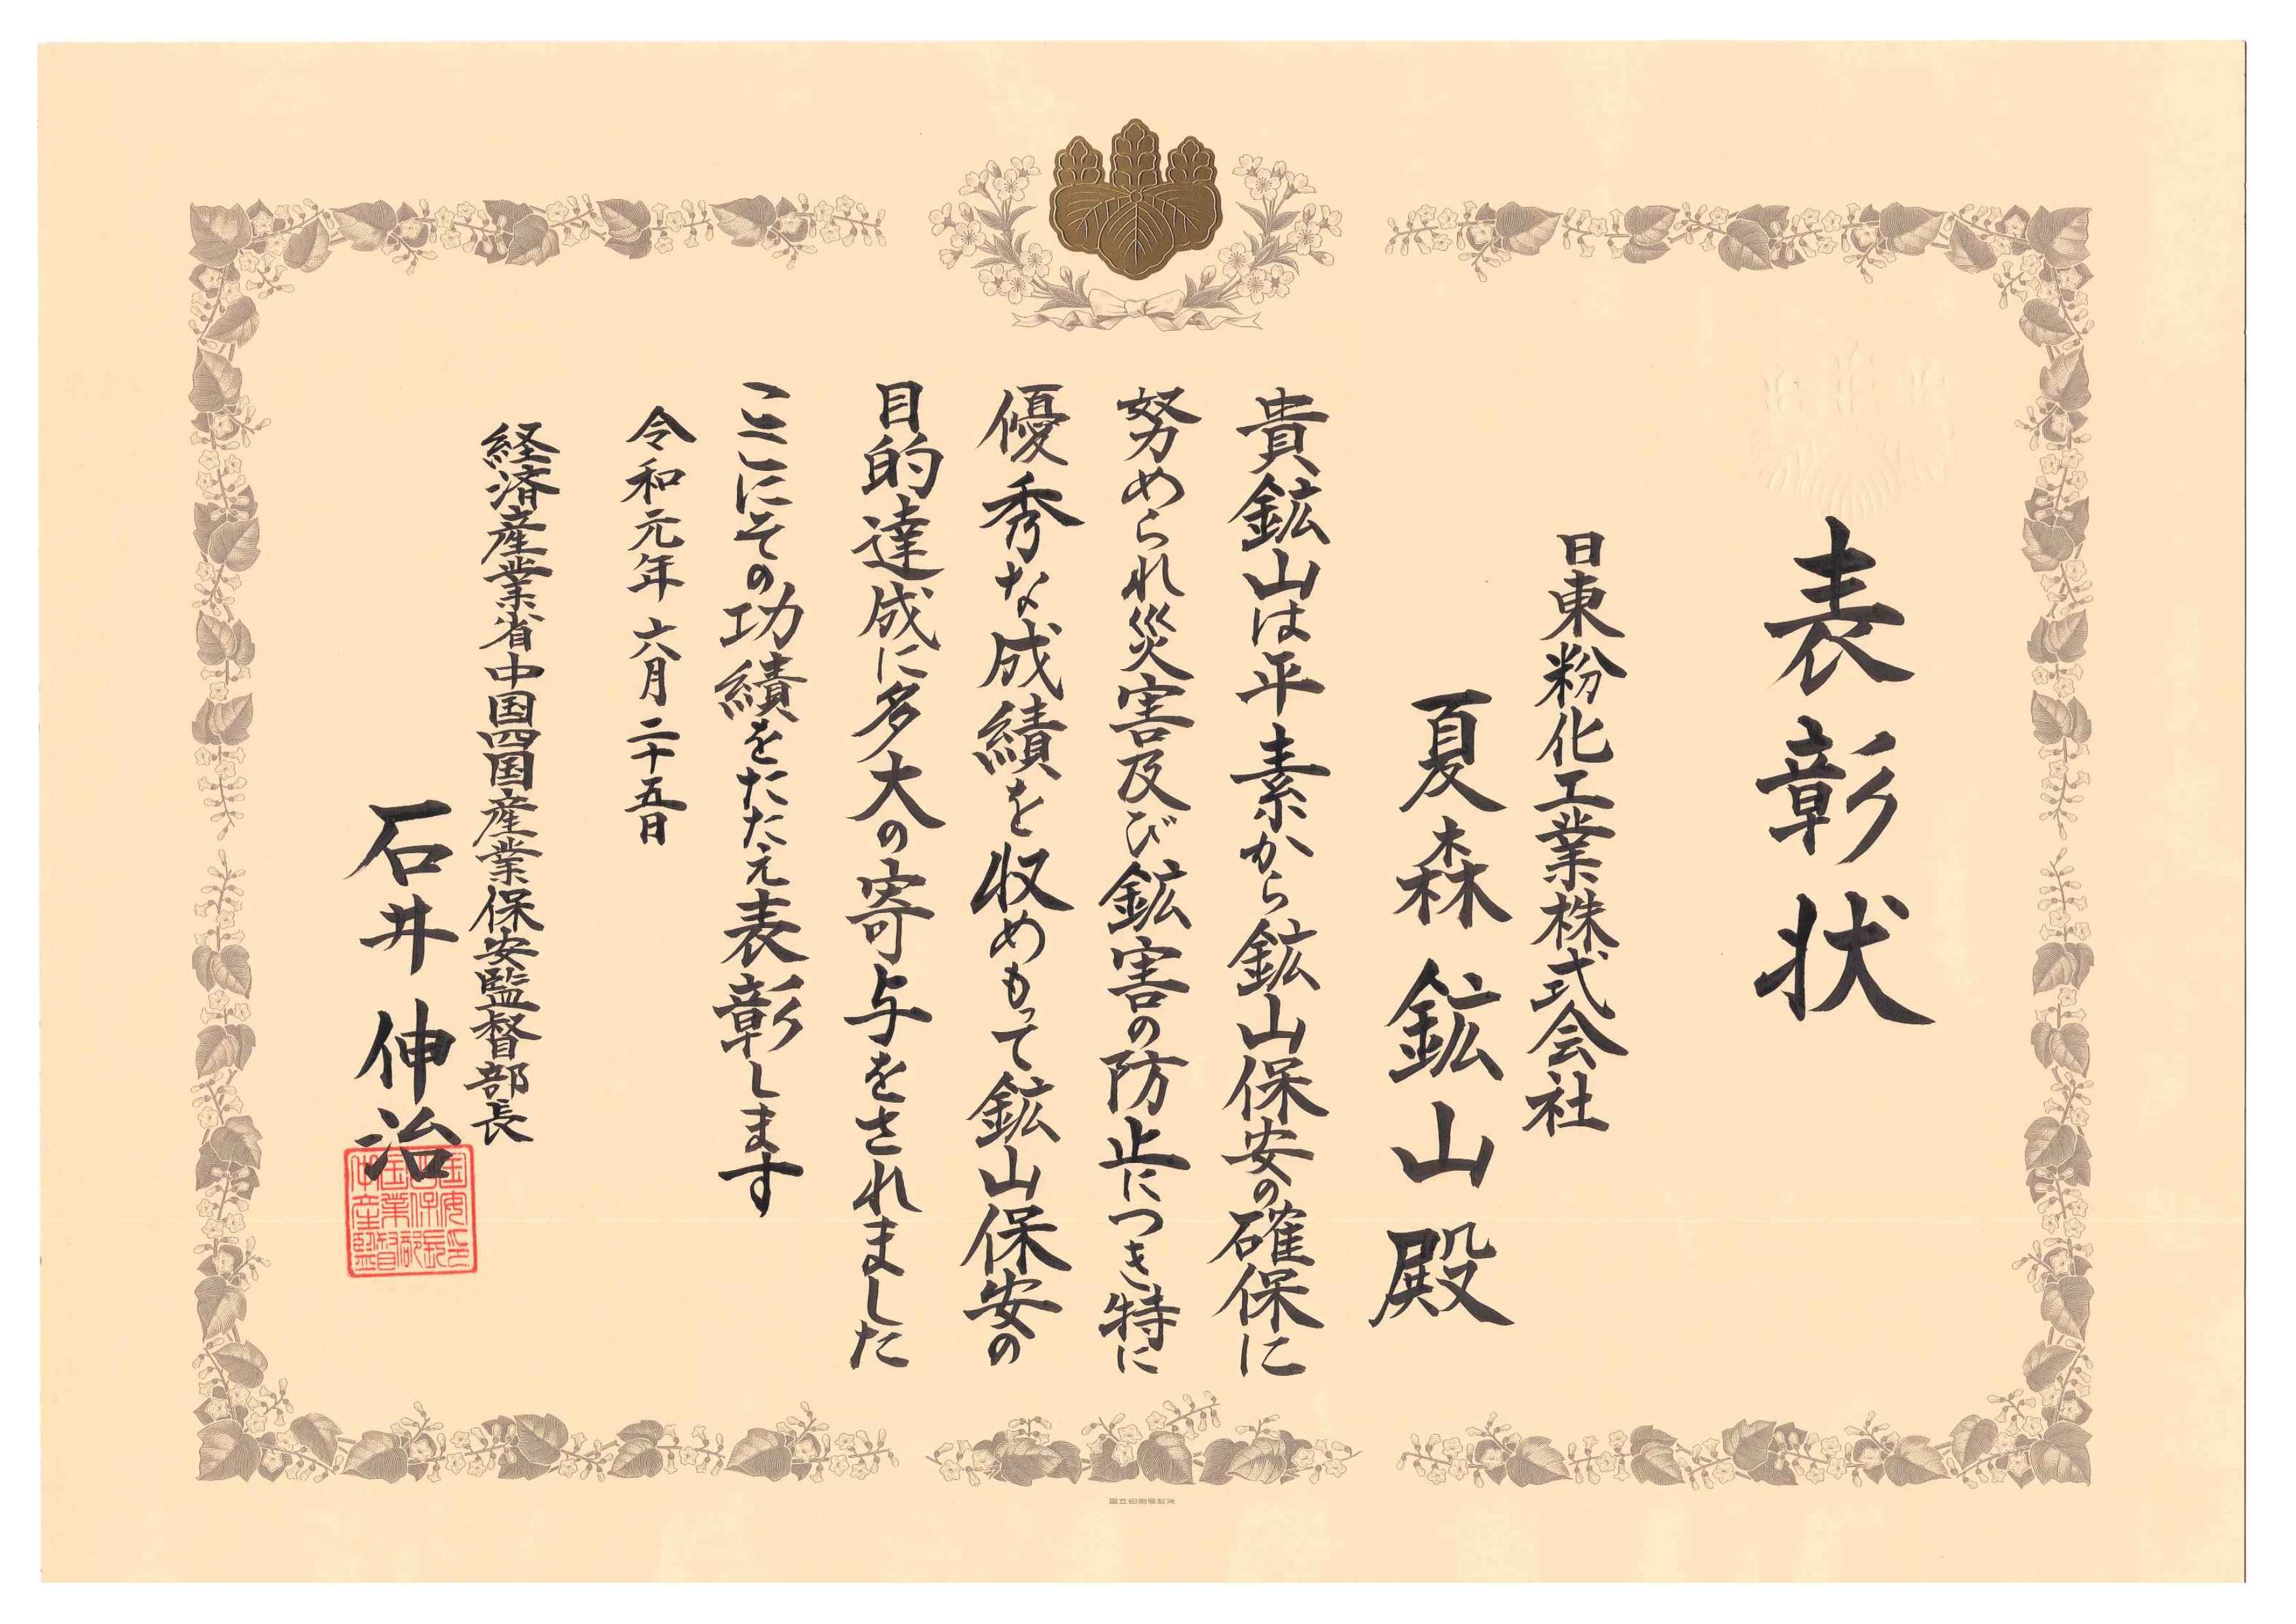 表彰状
日東粉化工業株式会社
夏森鉱山殿
貴鉱山は平素から鉱山保安の確保に
努められ災害及び鉱害の防止につき特に
優秀な成績を収めもって鉱山保安の
目的達成に多大の寄与をされました
ここにその功績をたたえ表彰します
令和元年六月二十五日
経済産業省中国四国産業保安監督部長
石井伸治